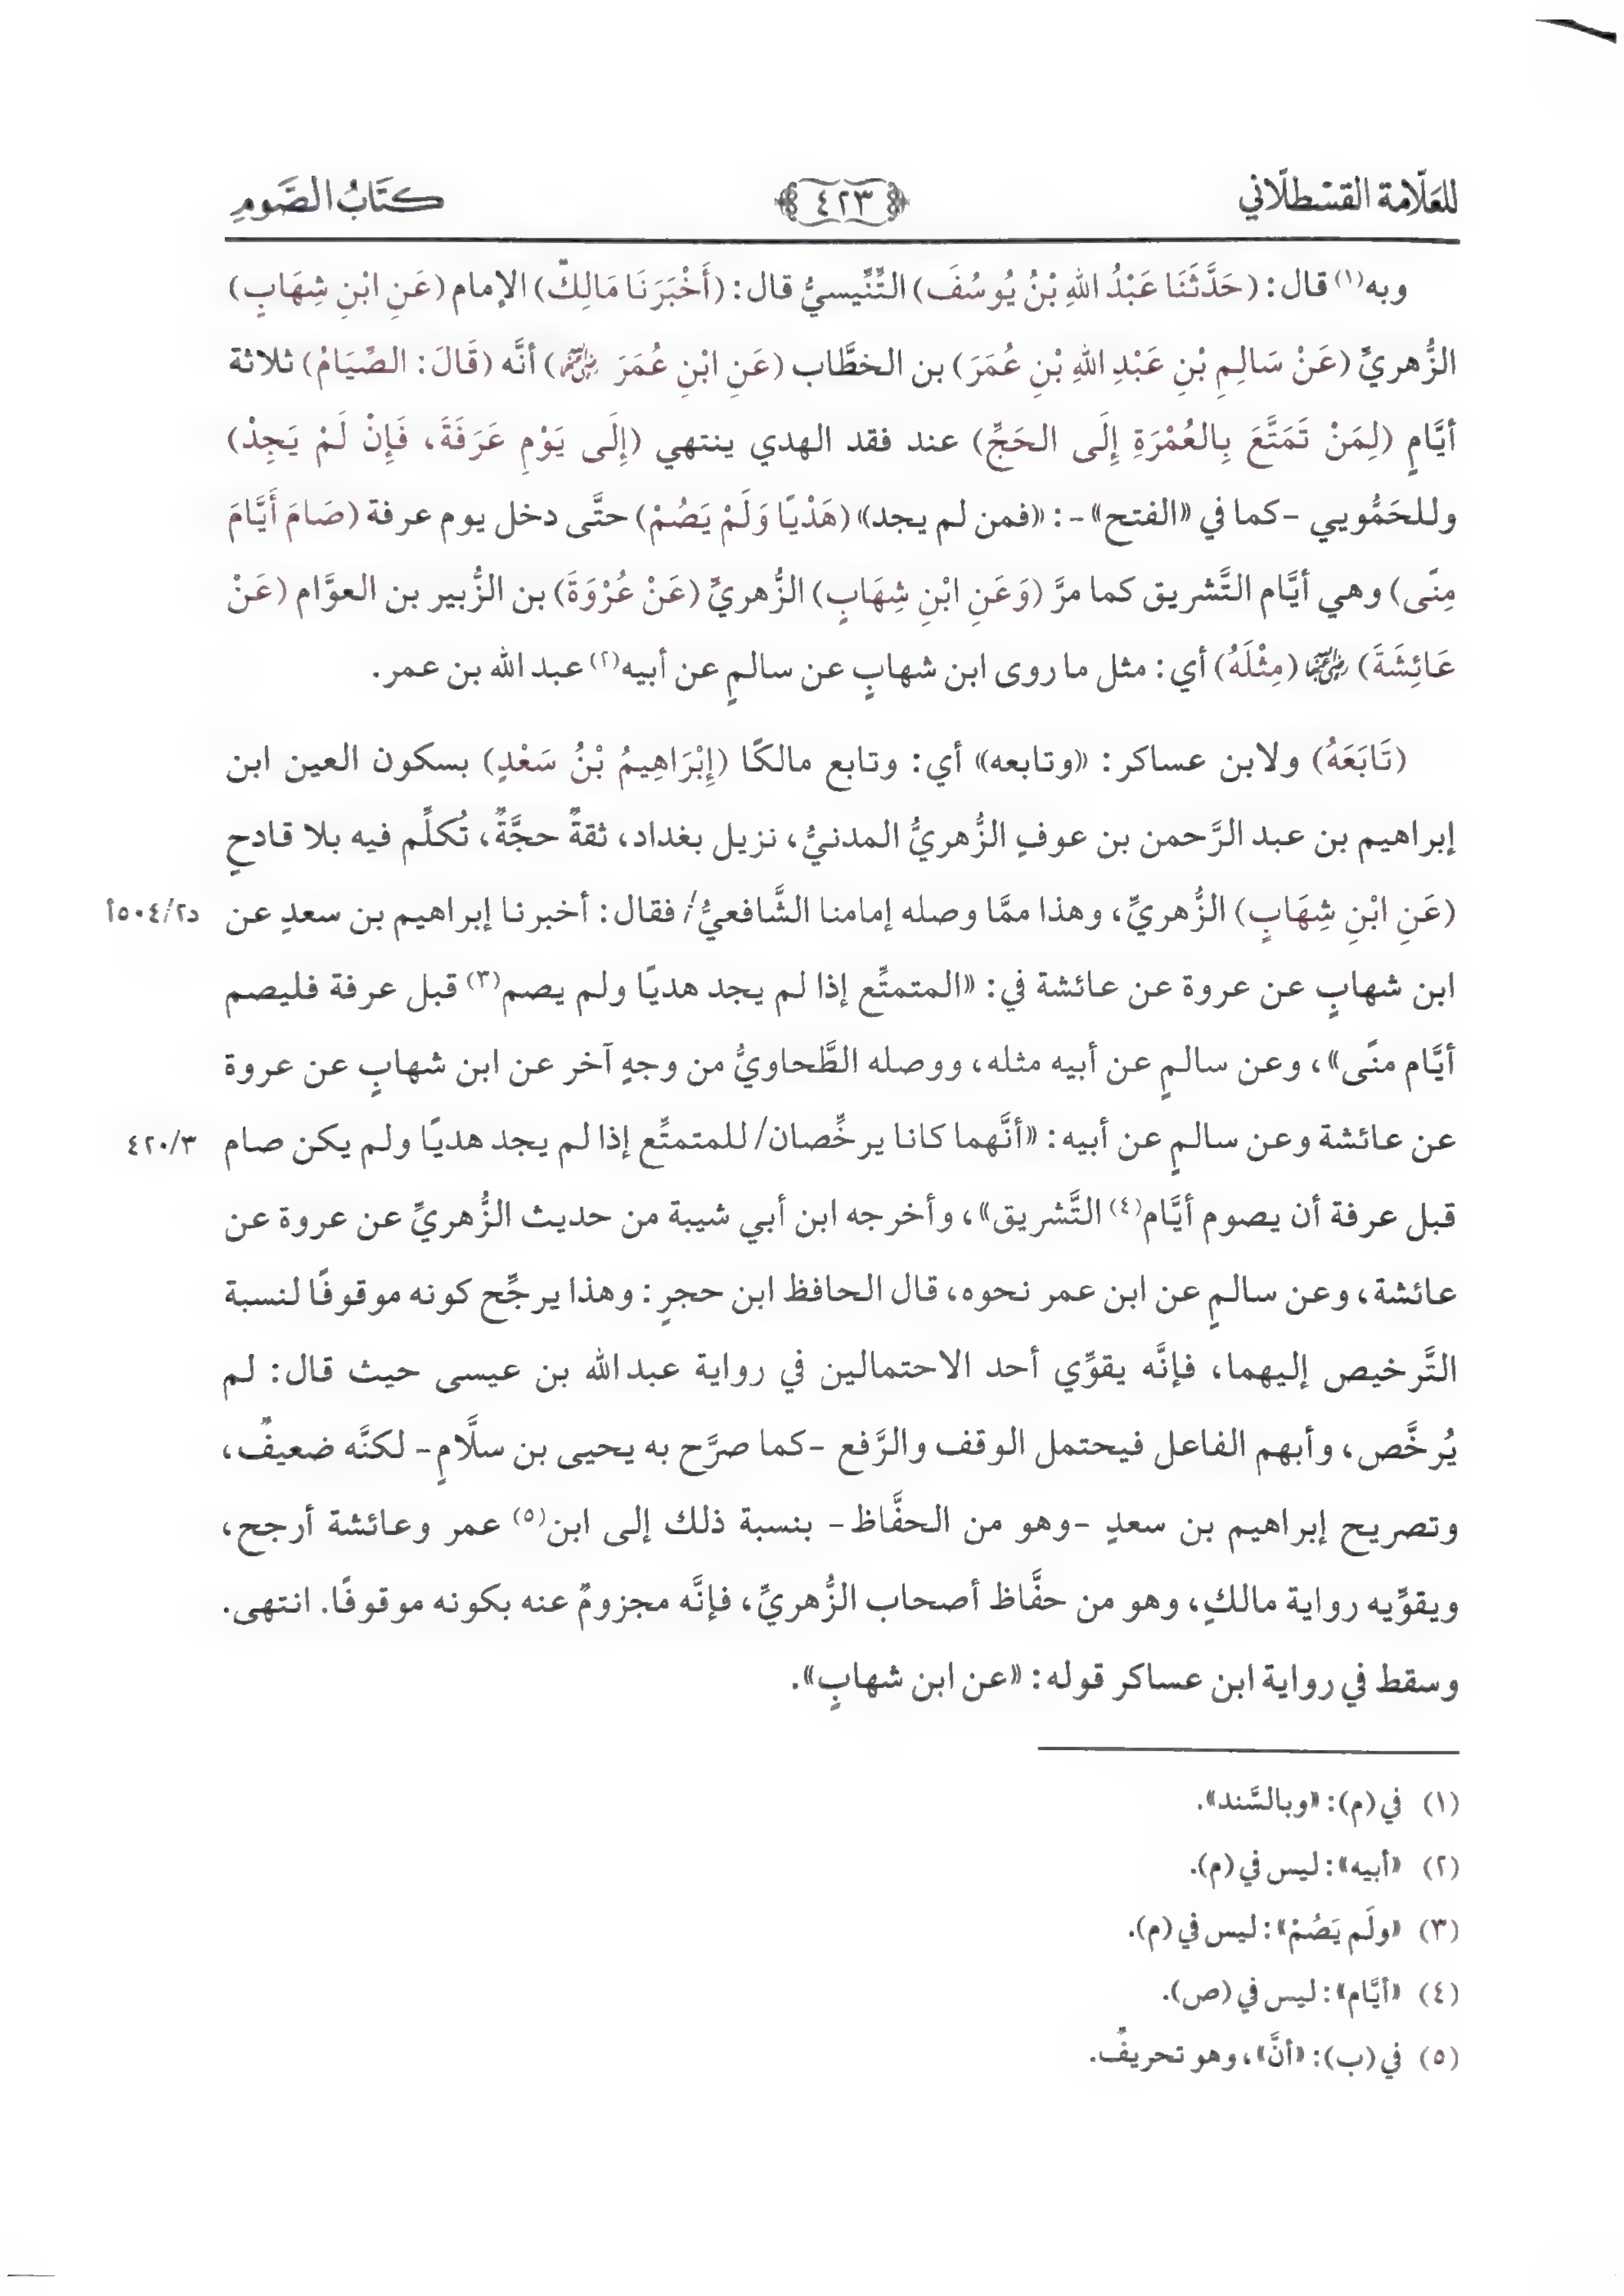 للعَلّامة القسْطلّاني ٤٢٣ كتَابُ الصَّومِ
وبه(١) قال: (حَدَّثَنَا عَبْدُ اللهِ بْنُ يُوسُفَ) التِّنِّيسيُّ قال: (أَخْبَرَنَا مَالِكٌ) الإمام (عَنِ ابْنِ شِهَابٍ)
الزُّهريِّ (عَنْ سَالِمِ بْنِ عَبْدِ اللهِ بْنِ عُمَرَ) بن الخطَّاب (عَنِ ابْنِ عُمَرَ ﵄) أنَّه (قَالَ: الصِّيَامُ) ثلاثة
أيَّامٍ (لِمَنْ تَمَتَّعَ بِالعُمْرَةِ إِلَى الحَجِّ) عند فقد الهدي ينتهي (إِلَى يَوْمِ عَرَفَةَ، فَإِنْ لَمْ يَجِدْ)
وللحَمُّويي -كما في «الفتح»-: «فمن لم يجد» (هَدْيًا وَلَمْ يَصُمْ) حتَّى دخل يوم عرفة (صَامَ أَيَّامَ
مِنًى) وهي أيَّام التَّشريق كما مرَّ (وَعَنِ ابْنِ شِهَابٍ) الزُّهريِّ (عَنْ عُرْوَةَ) بن الزُّبير بن العوَّام (عَنْ
عَائِشَةَ) ﵂ (مِثْلَهُ) أي: مثل ما روى ابن شهابٍ عن سالمٍ عن أبيه(٢) عبد الله بن عمر.
(تَابَعَهُ) ولابن عساكر: «وتابعه» أي: وتابع مالكًا (إِبْرَاهِيمُ بْنُ سَعْدٍ) بسكون العين ابن
إبراهيم بن عبد الرَّحمن بن عوفٍ الزُّهريُّ المدنيُّ، نزيل بغداد، ثقةٌ حجَّةٌ، تُكلِّم فيه بلا قادحٍ
(عَنِ ابْنِ شِهَابٍ) الزُّهريِّ، وهذا ممَّا وصله إمامنا الشَّافعيُّ/ فقال: أخبرنا إبراهيم بن سعدٍ عن د٥٠٤/٢أ
ابن شهابٍ عن عروة عن عائشة في: «المتمتِّع إذا لم يجد هديًا ولم يصم(٣) قبل عرفة فليصم
أيَّام منًى»، وعن سالمٍ عن أبيه مثله، ووصله الطَّحاويُّ من وجهٍ آخر عن ابن شهابٍ عن عروة
عن عائشة وعن سالمٍ عن أبيه: «أنَّهما كانا يرخِّصان/ للمتمتِّع إذا لم يجد هديًا ولم يكن صام ٤٢٠/٣
قبل عرفة أن يصوم أيَّام(٤) التَّشريق»، وأخرجه ابن أبي شيبة من حديث الزُّهريِّ عن عروة عن
عائشة، وعن سالمٍ عن ابن عمر نحوه، قال الحافظ ابن حجرٍ: وهذا يرجِّح كونه موقوفًا لنسبة
التَّرخيص إليهما، فإنَّه يقوِّي أحد الاحتمالين في رواية عبد الله بن عيسى حيث قال: لم
يُرخَّص، وأبهم الفاعل فيحتمل الوقف والرَّفع -كما صرَّح به يحيى بن سلَّامٍ- لكنَّه ضعيفٌ،
وتصريح إبراهيم بن سعدٍ -وهو من الحفَّاظ- بنسبة ذلك إلى ابن(٥) عمر وعائشة أرجح،
ويقوِّيه رواية مالكٍ، وهو من حفَّاظ أصحاب الزُّهريِّ، فإنَّه مجزومٌ عنه بكونه موقوفًا. انتهى.
وسقط في رواية ابن عساكر قوله: «عن ابن شهابٍ».
(١) في (م): «وبالسَّند».
(٢) «أبيه»: ليس في (م).
(٣) «ولَم يَصُمْ»: ليس في (م).
(٤) «أيَّام»: ليس في (ص).
(٥) في (ب): «أنَّ»، وهو تحريفٌ.